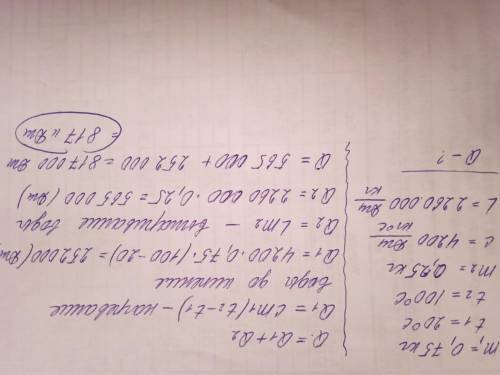 m₁ = 0,75 кг
t₁ = 20°C
t₂ = 100°C
m₂ = 0,25 кг
c = 4200 Дж/кг°C
L = 2 260 000 Дж/кг
Q - ?
Q = Q₁ + Q₂
Q₁ = cm₁(t₂ - t₁) - нагревание
воды до кипения
Q₁ = 4200 · 0,75 · (100 - 20) = 252 000 (Дж)
Q₂ = Lm₂ - выпаривание воды
Q₂ = 2260 000 · 0,25 = 565 000 (Дж)
Q = 565 000 + 252 000 = 817 000 Дж
= 817 к Дж